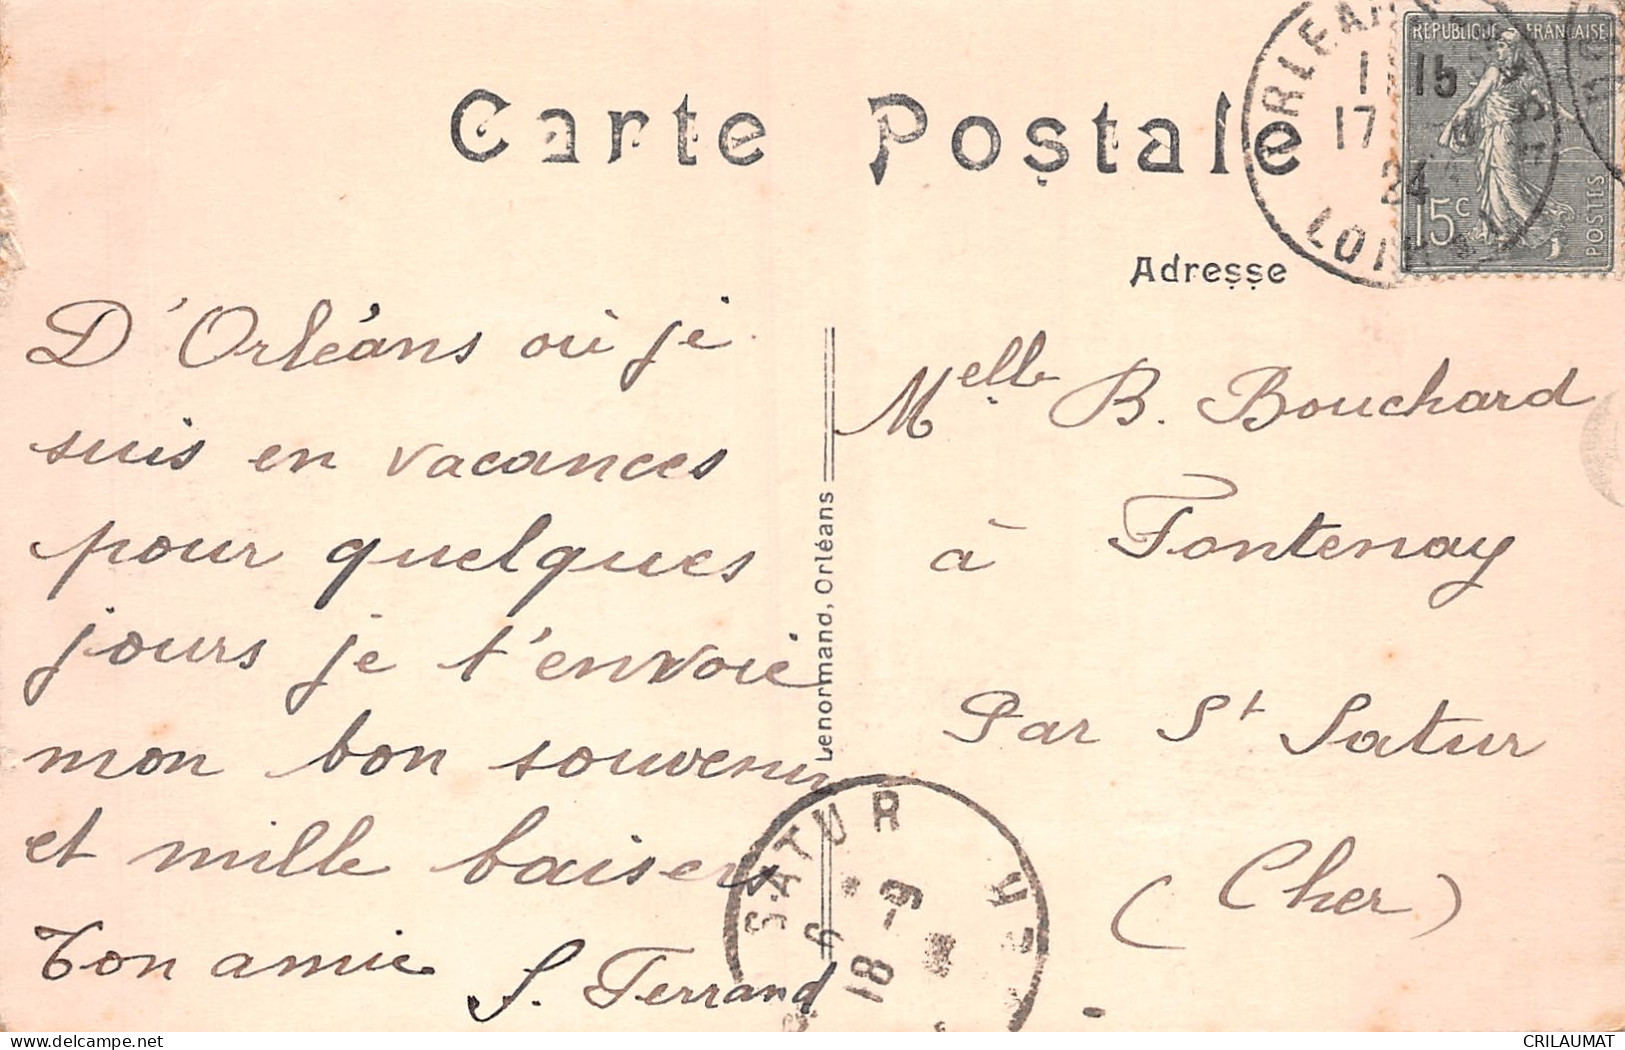 Carte Postale
REPUBLIQUE FRANÇAISE
15c
POSTES
17
24
Adresse
D'Orléans où je
suis en vacances
pour quelques
jours je t'envoie
mon bon souvenir
et mille baisers
Ton amie
S. Ferrand
Lenormand, Orléans
Melle B. Bouchard
à Fontenay
Par St Satur
(Cher)
SATUR
18 -9
delcampe.net
CRILAUMAT